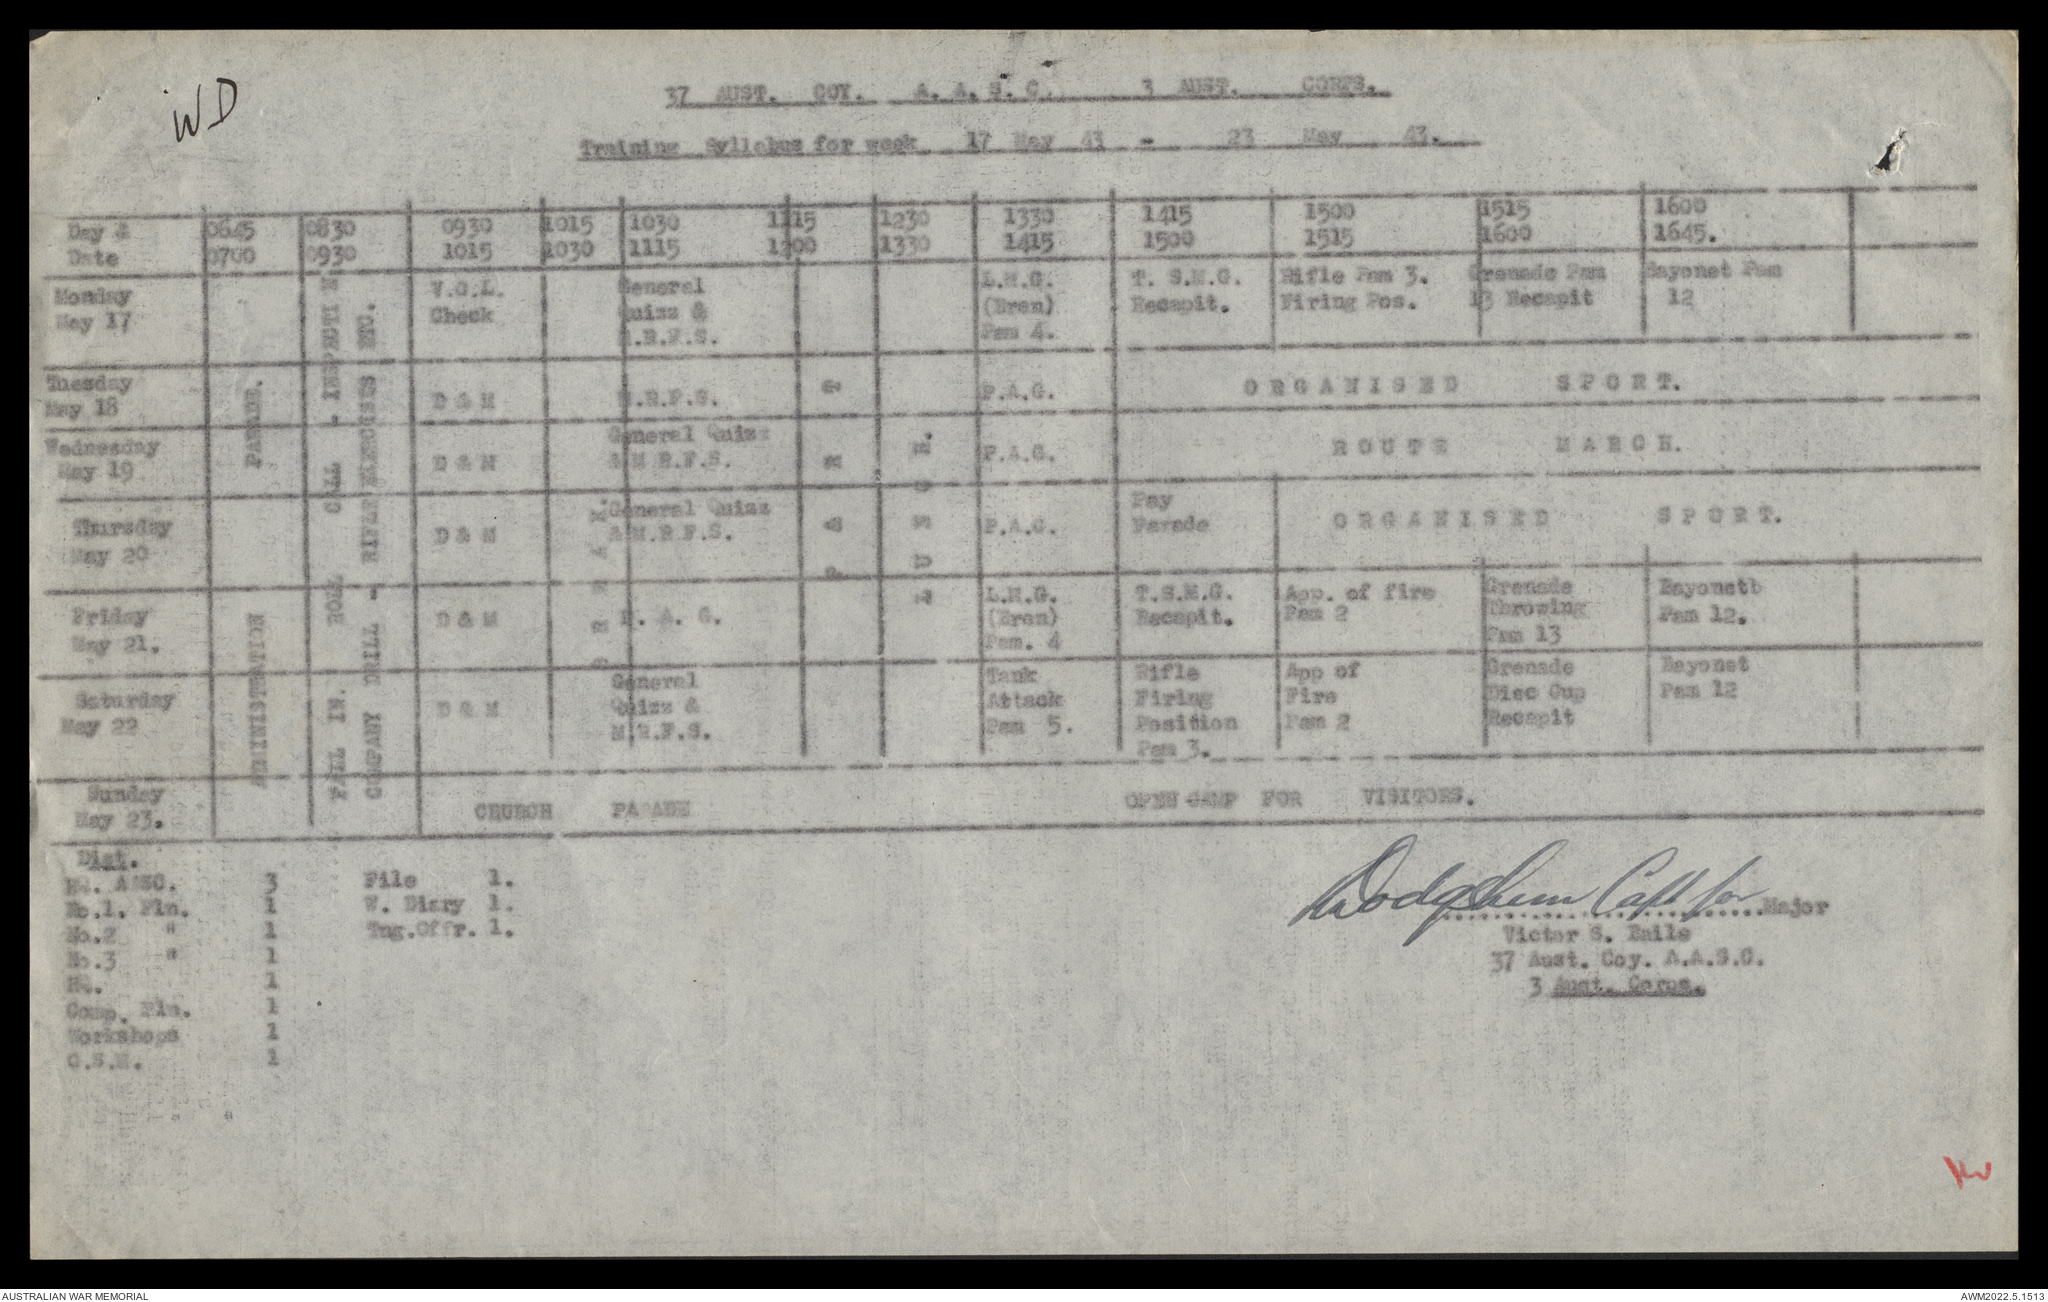 WD
37 AUST. COY. A. A. S. C. 3 AUST. CORPS.
Training Syllabus for week 17 May 43 - 23 May 43.
Day & 0645 0830 0930 1015 1030 1115 1230 1330 1415 1500 1515 1600
Date 0700 0930 1015 1030 1115 1200 1330 1415 1500 1515 1600 1645.
PARADE.
ADMINISTRATION
FALL IN. ROLL CALL - INSPECTI N
COMPANY DRILL - RIFLE EXERCISES ETC.
Monday V.O.L. General L.M.G. T. S.M.G. Rifle Pam 3. Grenade Pam Bayonet Pam
May 17 Check Quizz & (Bren) Recapit. Firing Pos. 13 Recapit 12
M.R.F.S. Pam 4.
Tuesday
May 18 D & M M.R.F.S. P.A.G. ORGANISED SPORT.
Wednesday General Quizz
May 19 D & M & M R.F.S. P.A.G. ROUTE MARCH.
Thursday General Quizz Pay
May 20 D & M & M.R.F.S. P.A.G. Parade ORGANISED SPORT.
Friday D & M P. A. G. L.M.G. T.S.M.G. App. of fire Grenade Bayonetb
May 21. (Bren) Recapit. Pam 2 Throwing Pam 12.
Pam. 4 Pam 13
Saturday D & M General Tank Rifle App of Grenade Bayonet
May 22 Quizz & Attack Firing Fire Disc Cup Pam 12
M.R.F.S. Pam 5. Position Pam 2 Recapit
Pam 3.
Sunday
May 23. CHURCH PARADE OPEN CAMP FOR VISITORS.
Dist.
HQ. AASC. 3 File 1.
No.1. Pln. 1 W. Diary 1.
No.2 " 1 Tng.Offr. 1.
No.3 " 1
HQ. 1
Comp. Pln. 1
Workshops 1
C.S.M. 1
Capt for Major
Victor S. Baile
37 Aust. Coy. A.A.S.C.
3 Aust. Corps.
AUSTRALIAN WAR MEMORIAL AWM2022.5.1513